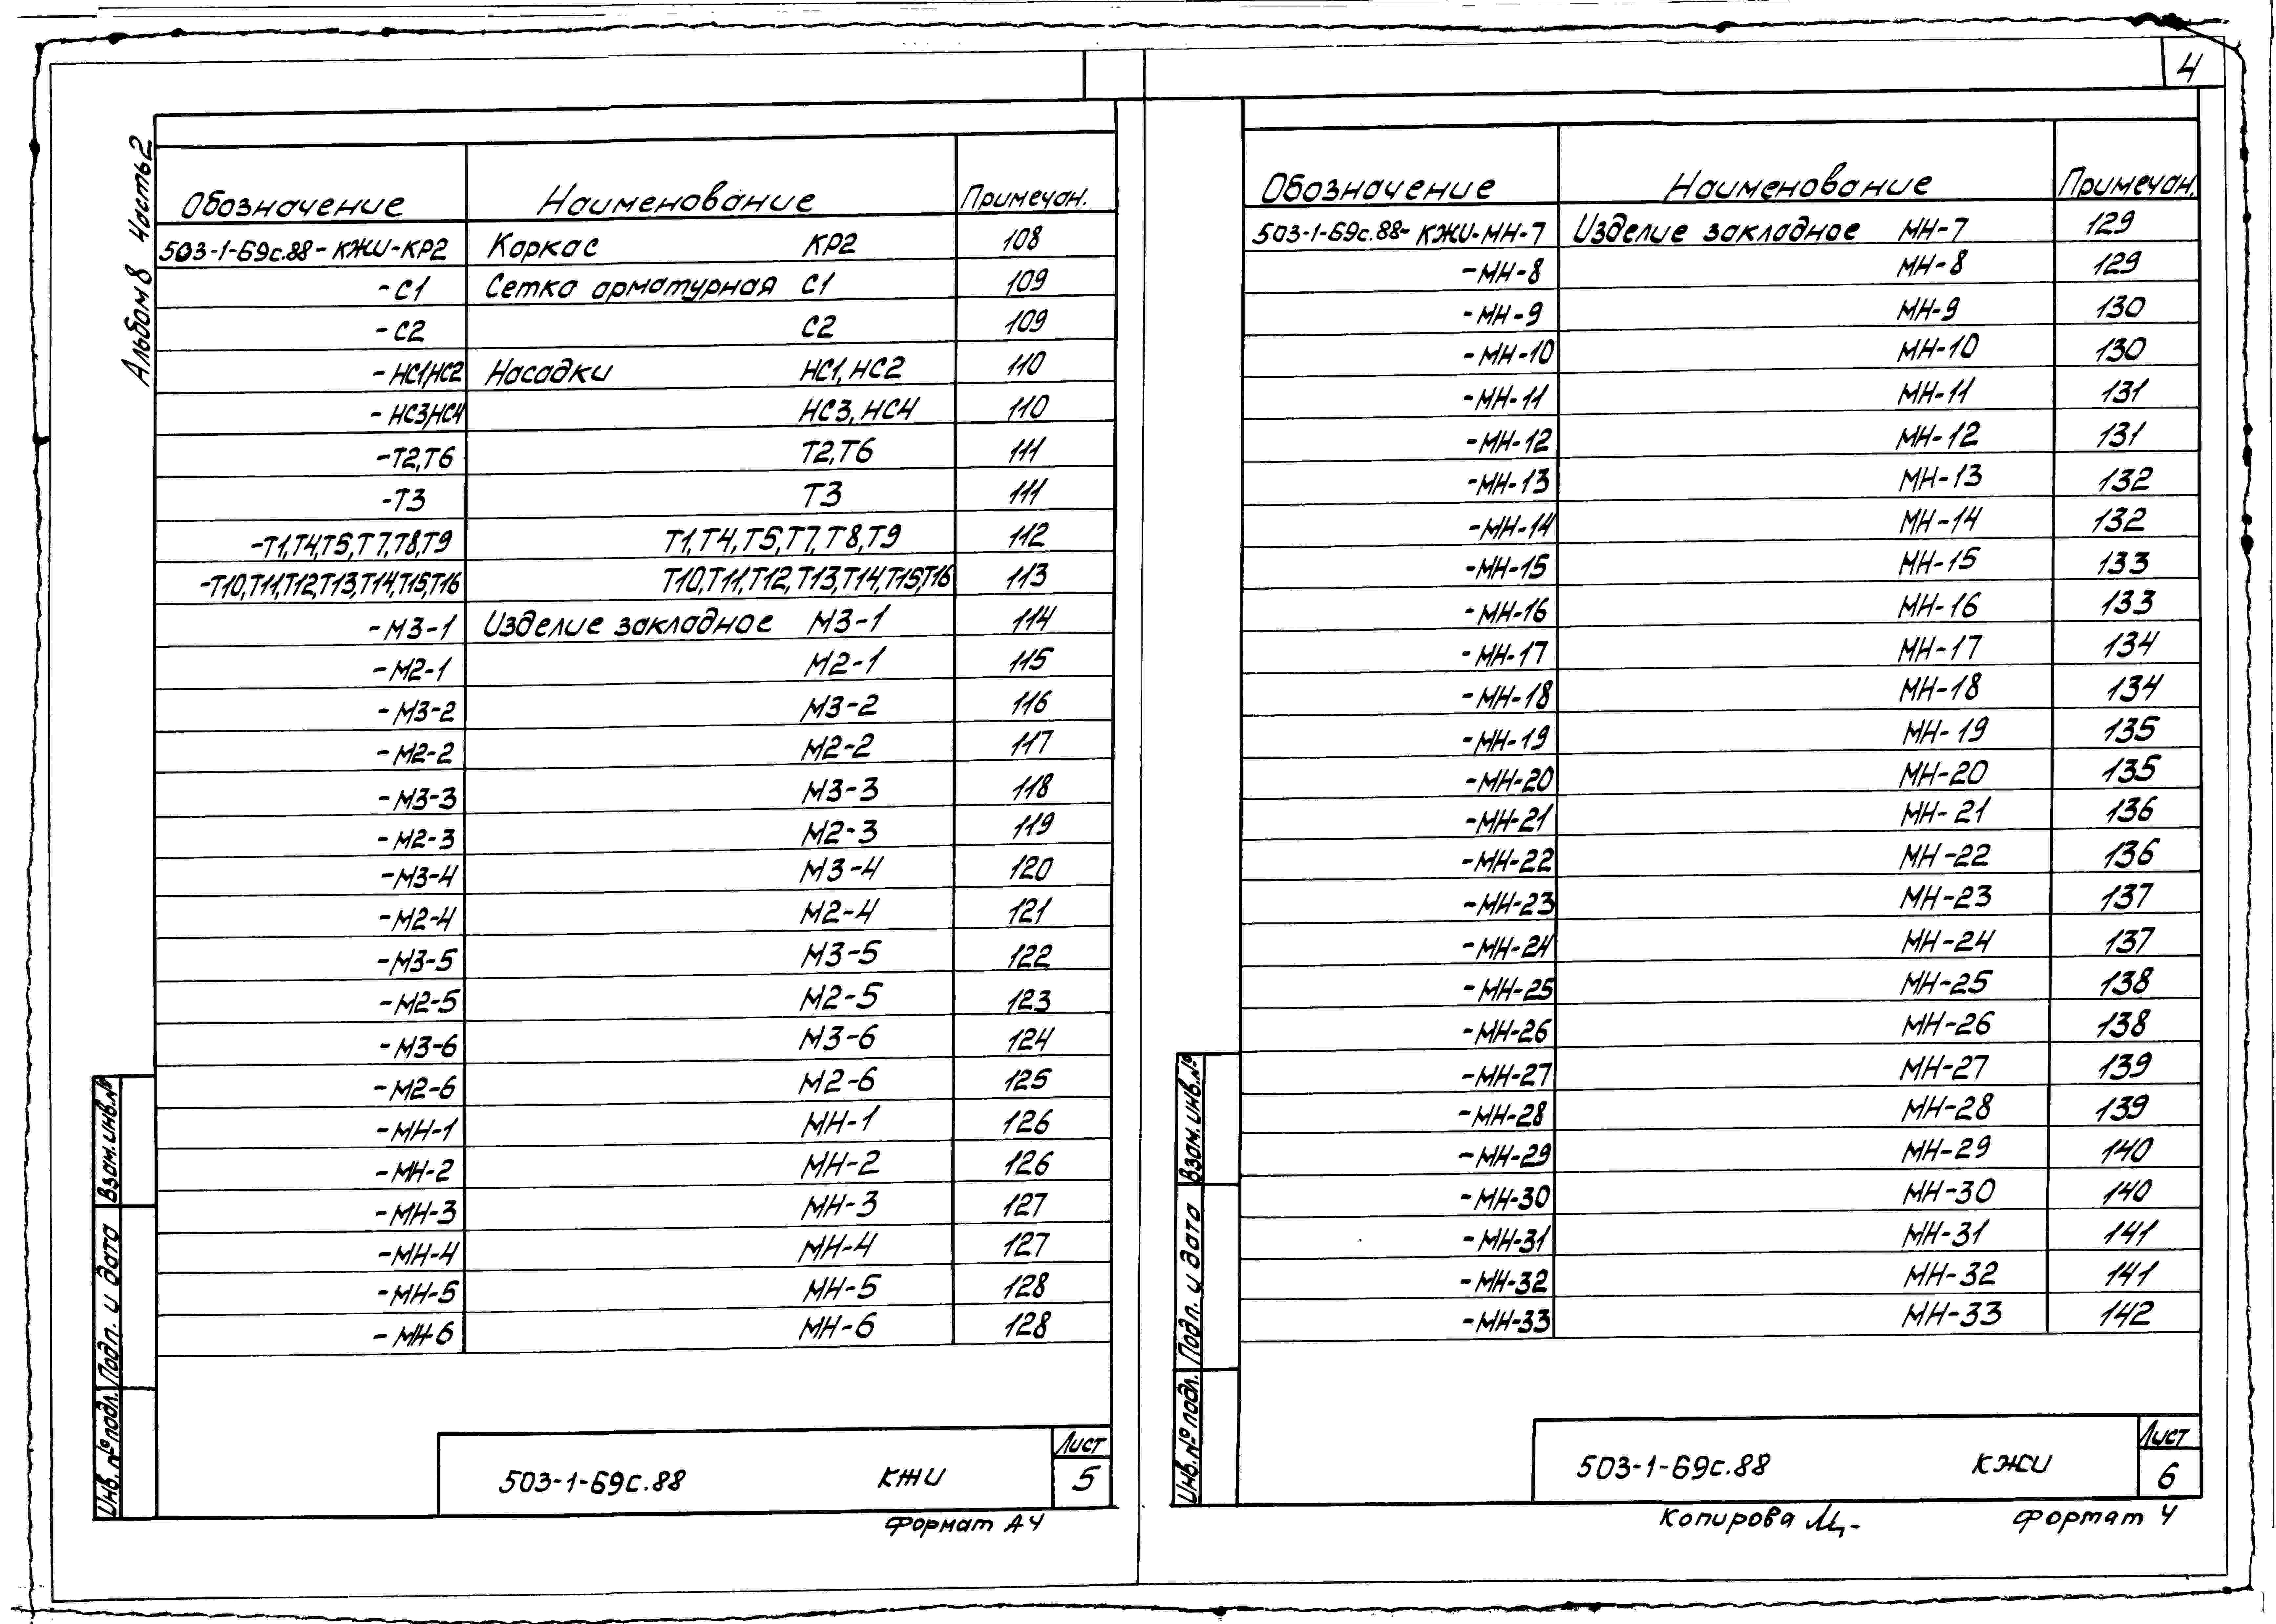 4
Альбом 8 Часть 2
Обозначение Наименование Примечан.
503-1-69с.88-КЖИ-КР2 Каркас КР2 108
-С1 Сетка арматурная С1 109
-С2 С2 109
-НС1,НС2 Насадки НС1, НС2 110
-НС3,НС4 НС3, НС4 110
-Т2,Т6 Т2,Т6 111
-Т3 Т3 111
-Т1,Т4,Т5,Т7,Т8,Т9 Т1,Т4,Т5,Т7,Т8,Т9 112
-Т10,Т11,Т12,Т13,Т14,Т15,Т16 Т10,Т11,Т12,Т13,Т14,Т15,Т16 113
-М3-1 Изделие закладное М3-1 114
-М2-1 М2-1 115
-М3-2 М3-2 116
-М2-2 М2-2 117
-М3-3 М3-3 118
-М2-3 М2-3 119
-М3-4 М3-4 120
-М2-4 М2-4 121
-М3-5 М3-5 122
-М2-5 М2-5 123
-М3-6 М3-6 124
-М2-6 М2-6 125
-МН-1 МН-1 126
-МН-2 МН-2 126
-МН-3 МН-3 127
-МН-4 МН-4 127
-МН-5 МН-5 128
-МН-6 МН-6 128
Взам. инв. №
Подп. и дата
Инв. № подл.
503-1-69с.88 КЖИ Лист
5
Формат А4
Обозначение Наименование Примечан.
503-1-69с.88-КЖИ-МН-7 Изделие закладное МН-7 129
-МН-8 МН-8 129
-МН-9 МН-9 130
-МН-10 МН-10 130
-МН-11 МН-11 131
-МН-12 МН-12 131
-МН-13 МН-13 132
-МН-14 МН-14 132
-МН-15 МН-15 133
-МН-16 МН-16 133
-МН-17 МН-17 134
-МН-18 МН-18 134
-МН-19 МН-19 135
-МН-20 МН-20 135
-МН-21 МН-21 136
-МН-22 МН-22 136
-МН-23 МН-23 137
-МН-24 МН-24 137
-МН-25 МН-25 138
-МН-26 МН-26 138
-МН-27 МН-27 139
-МН-28 МН-28 139
-МН-29 МН-29 140
-МН-30 МН-30 140
-МН-31 МН-31 141
-МН-32 МН-32 141
-МН-33 МН-33 142
Взам. инв. №
Подп. и дата
Инв. № подл.
503-1-69с.88 КЖИ Лист
6
Копирова Формат 4